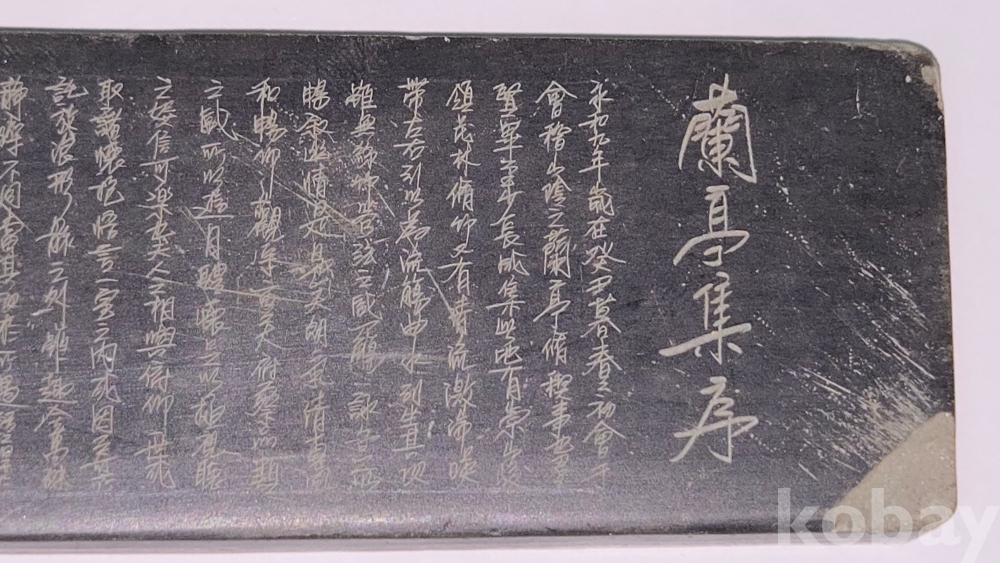 蘭亭集序
永和九年歲在癸丑暮春之初會于
會稽山陰之蘭亭脩稧事也羣
賢畢至少長咸集此地有崇山峻
領茂林脩竹又有清流激湍暎
帶左右引以爲流觴曲水列坐其次
雖無絲竹管弦之盛一觴一詠亦足以
暢叙幽情是日也天朗氣清惠風
和暢仰觀宇宙之大俯察品類
之盛所以遊目騁懷足以極視聽
之娛信可樂也夫人之相與俯仰一世或
取諸懷抱悟言一室之內或因寄所
託放浪形骸之外雖趣舍萬殊
靜躁不同當其欣於所遇暫得
kobay